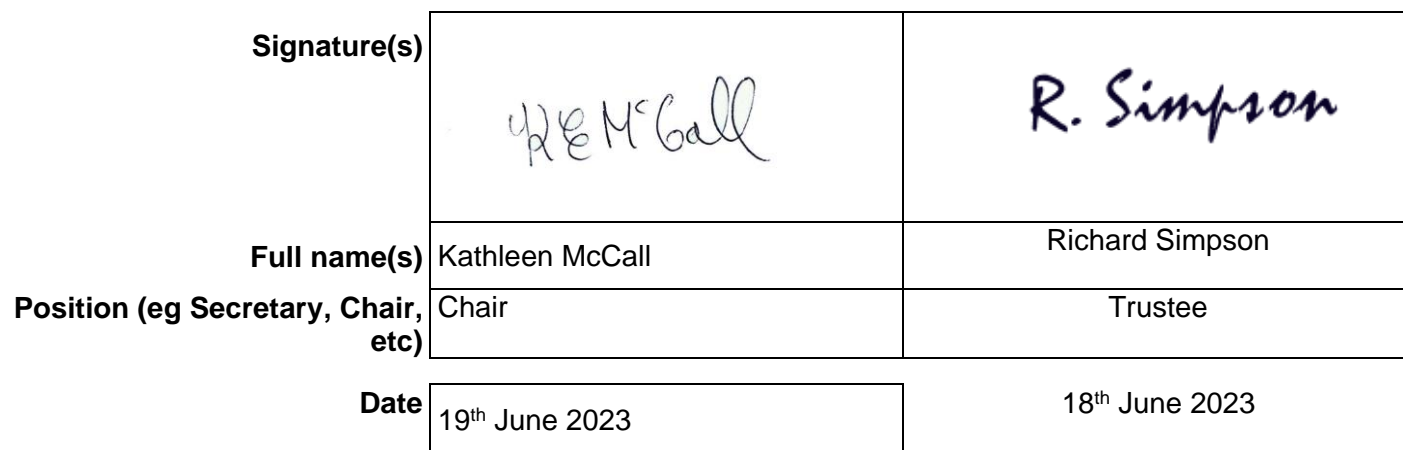 Signature(s)
K E McCall R. Simpson
Full name(s) Kathleen McCall Richard Simpson
Position (eg Secretary, Chair, Chair Trustee
etc)
Date 19th June 2023 18th June 2023